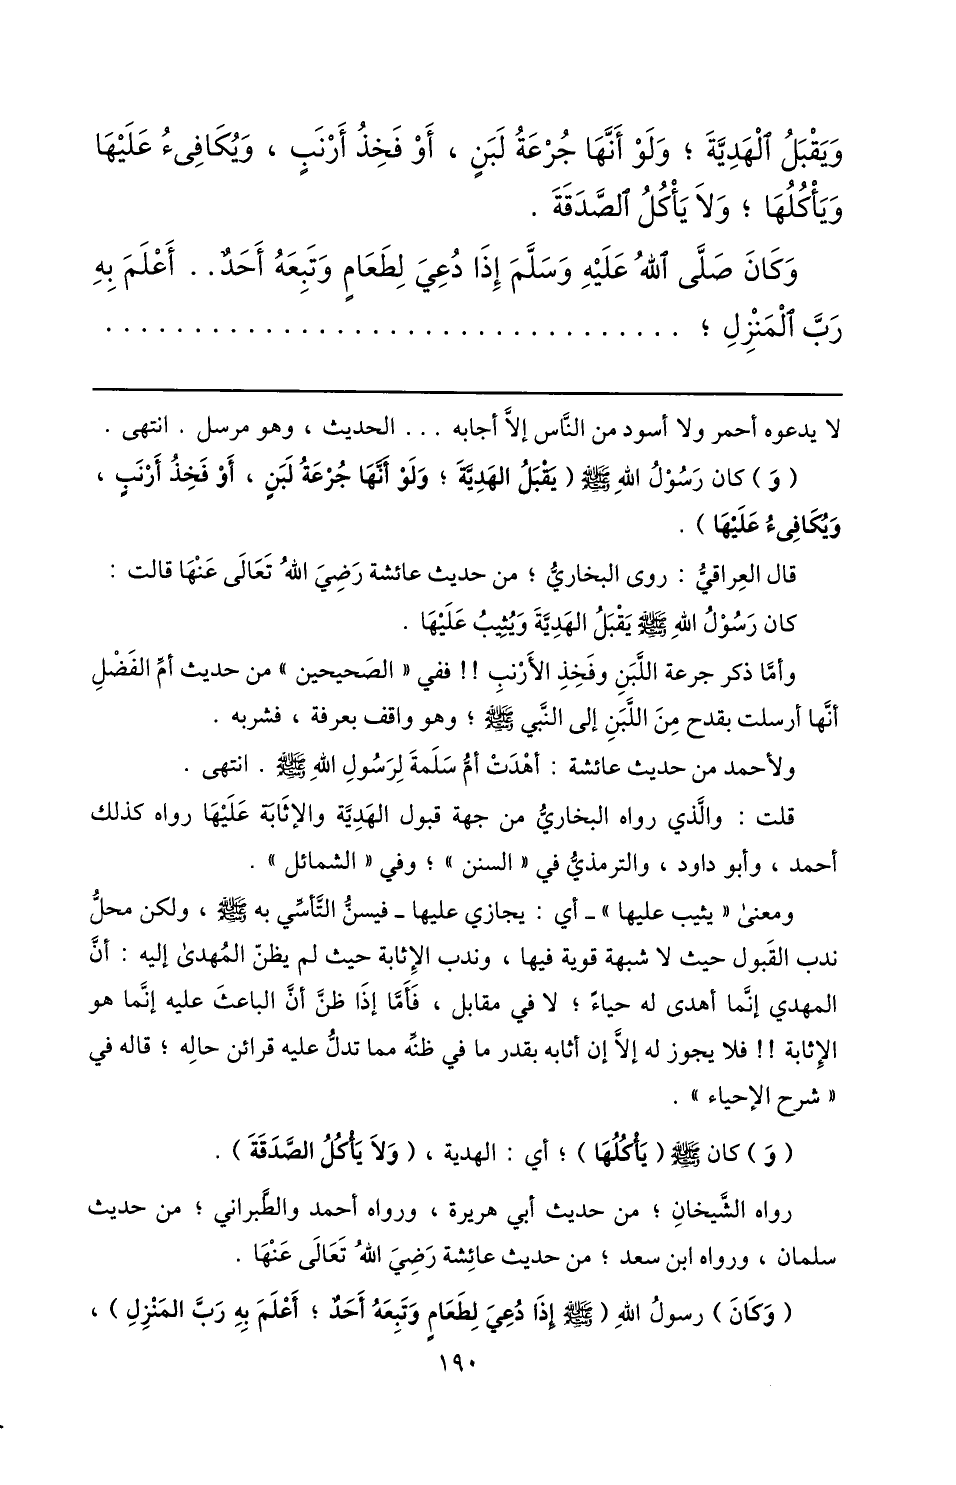 وَيَقْبَلُ ٱلْهَدِيَّةَ ؛ وَلَوْ أَنَّهَا جُرْعَةُ لَبَنٍ ، أَوْ فَخِذُ أَرْنَبٍ ، وَيُكَافِىءُ عَلَيْهَا
وَيَأْكُلُهَا ؛ وَلاَ يَأْكُلُ ٱلصَّدَقَةَ .
وَكَانَ صَلَّى ٱللهُ عَلَيْهِ وَسَلَّمَ إِذَا دُعِيَ لِطَعَامٍ وَتَبِعَهُ أَحَدٌ . . أَعْلَمَ بِهِ
رَبَّ ٱلْمَنْزِلِ ؛ . . . . . . . . . . . . . . . . . . . . . . . . . . . . . . . . .
لا يدعوه أحمر ولا أسود من النَّاس إلاَّ أجابه . . . الحديث ، وهو مرسل . انتهى .
( وَ ) كان رَسُوْلُ اللهِ ﷺ ( يَقْبَلُ الهَدِيَّةَ ؛ وَلَوْ أَنَّهَا جُرْعَةُ لَبَنٍ ، أَوْ فَخِذُ أَرْنَبٍ ،
وَيُكَافِىءُ عَلَيْهَا ) .
قال العِراقيُّ : روى البخاريُّ ؛ من حديث عائشة رَضِيَ اللهُ تَعَالَى عَنْهَا قالت :
كان رَسُوْلُ اللهِ ﷺ يَقْبَلُ الهَدِيَّةَ وَيُثِيبُ عَلَيْهَا .
وأمَّا ذكر جرعة اللَّبَنِ وفَخِذِ الأَرْنبِ !! ففي « الصَحيحين » من حديث أمِّ الفَضْلِ
أنَّها أرسلت بقدح مِنَ اللَّبَنِ إلى النَّبي ﷺ ؛ وهو واقف بعرفة ، فشربه .
ولأحمد من حديث عائشة : أَهْدَتْ أمُّ سَلَمةَ لِرَسُولِ اللهِ ﷺ . انتهى .
قلت : والَّذي رواه البخاريُّ من جهة قبول الهَدِيَّة والإثَابَة عَلَيْهَا رواه كذلك
أحمد ، وأبو داود ، والترمذيُّ في « السنن » ؛ وفي « الشمائل » .
ومعنىٰ « يثيب عليها » ـ أي : يجازي عليها ـ فيسنُّ التَّأسِّي به ﷺ ، ولكن محلُّ
ندب القَبول حيث لا شبهة قوية فيها ، وندب الإثابة حيث لم يظنّ المُهدىٰ إليه : أنَّ
المهدي إنَّما أهدى له حياءً ؛ لا في مقابل ، فَأَمَّا إذَا ظنَّ أنَّ الباعثَ عليه إنَّما هو
الإثابة !! فلا يجوز له إلاَّ إن أثابه بقدر ما في ظنِّه مما تدلُّ عليه قرائن حالِه ؛ قاله في
« شرح الإحياء » .
( وَ ) كان ﷺ ( يَأْكُلُهَا ) ؛ أي : الهدية ، ( وَلاَ يَأْكُلُ الصَّدَقَةَ ) .
رواه الشَّيخانِ ؛ من حديث أبي هريرة ، ورواه أحمد والطَّبراني ؛ من حديث
سلمان ، ورواه ابن سعد ؛ من حديث عائِشة رَضِيَ اللهُ تَعَالَى عَنْهَا .
( وَكَانَ ) رسولُ اللهِ ( ﷺ إِذَا دُعِيَ لِطَعَامٍ وَتَبِعَهُ أَحَدٌ ؛ أَعْلَمَ بِهِ رَبَّ المَنْزِلِ ) ،
١٩٠